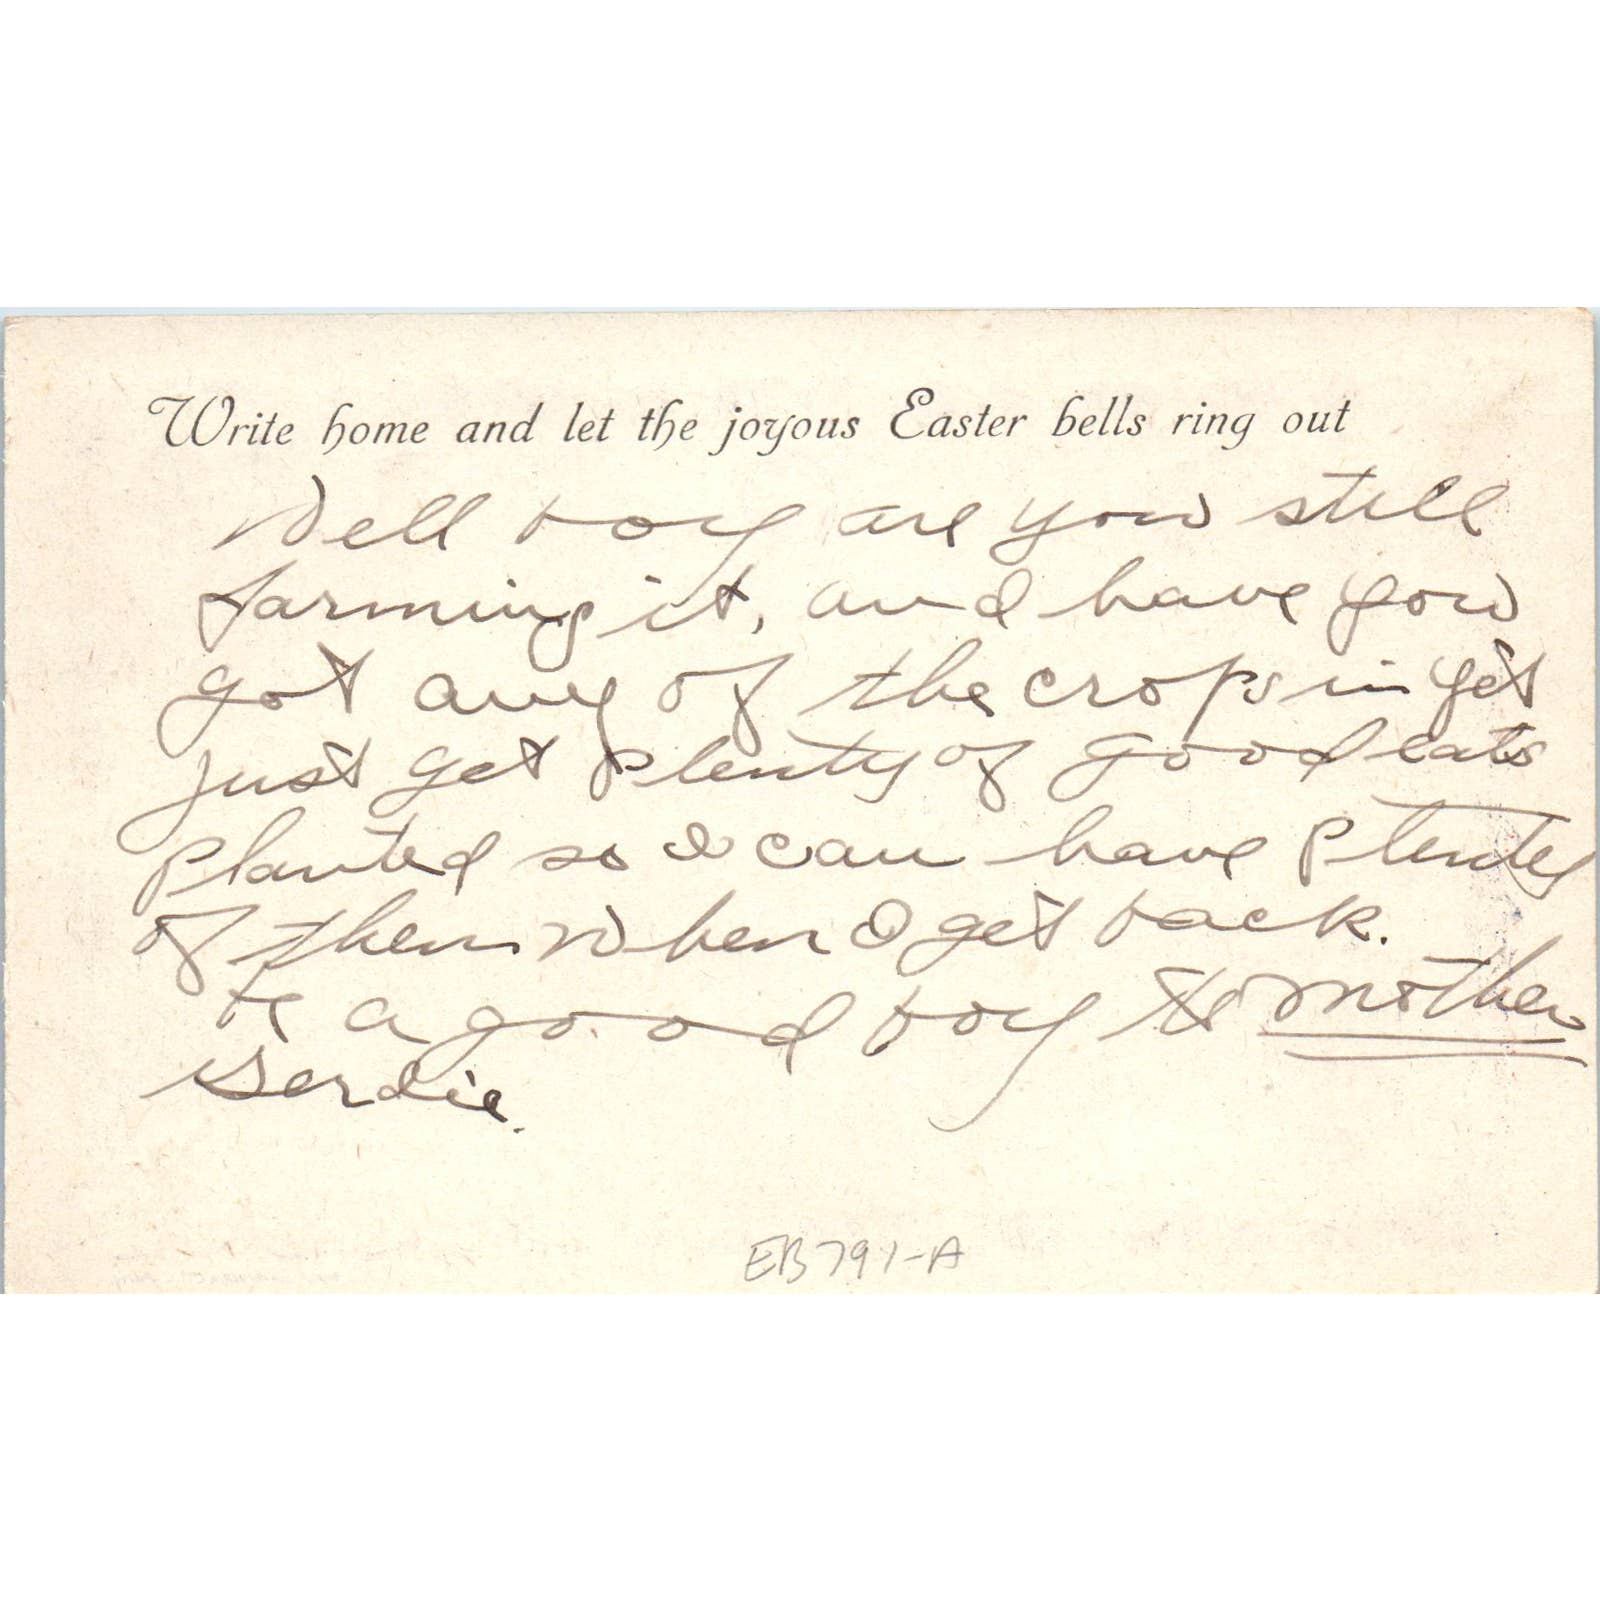 Write home and let the joyous Easter bells ring out
Well boy are you still
farming it, and have you
got any of the crops in yet
just get plenty of good eats
planted so I can have plenty
of them when I get back.
be a good boy to mother
Gerdie.
EB791-A